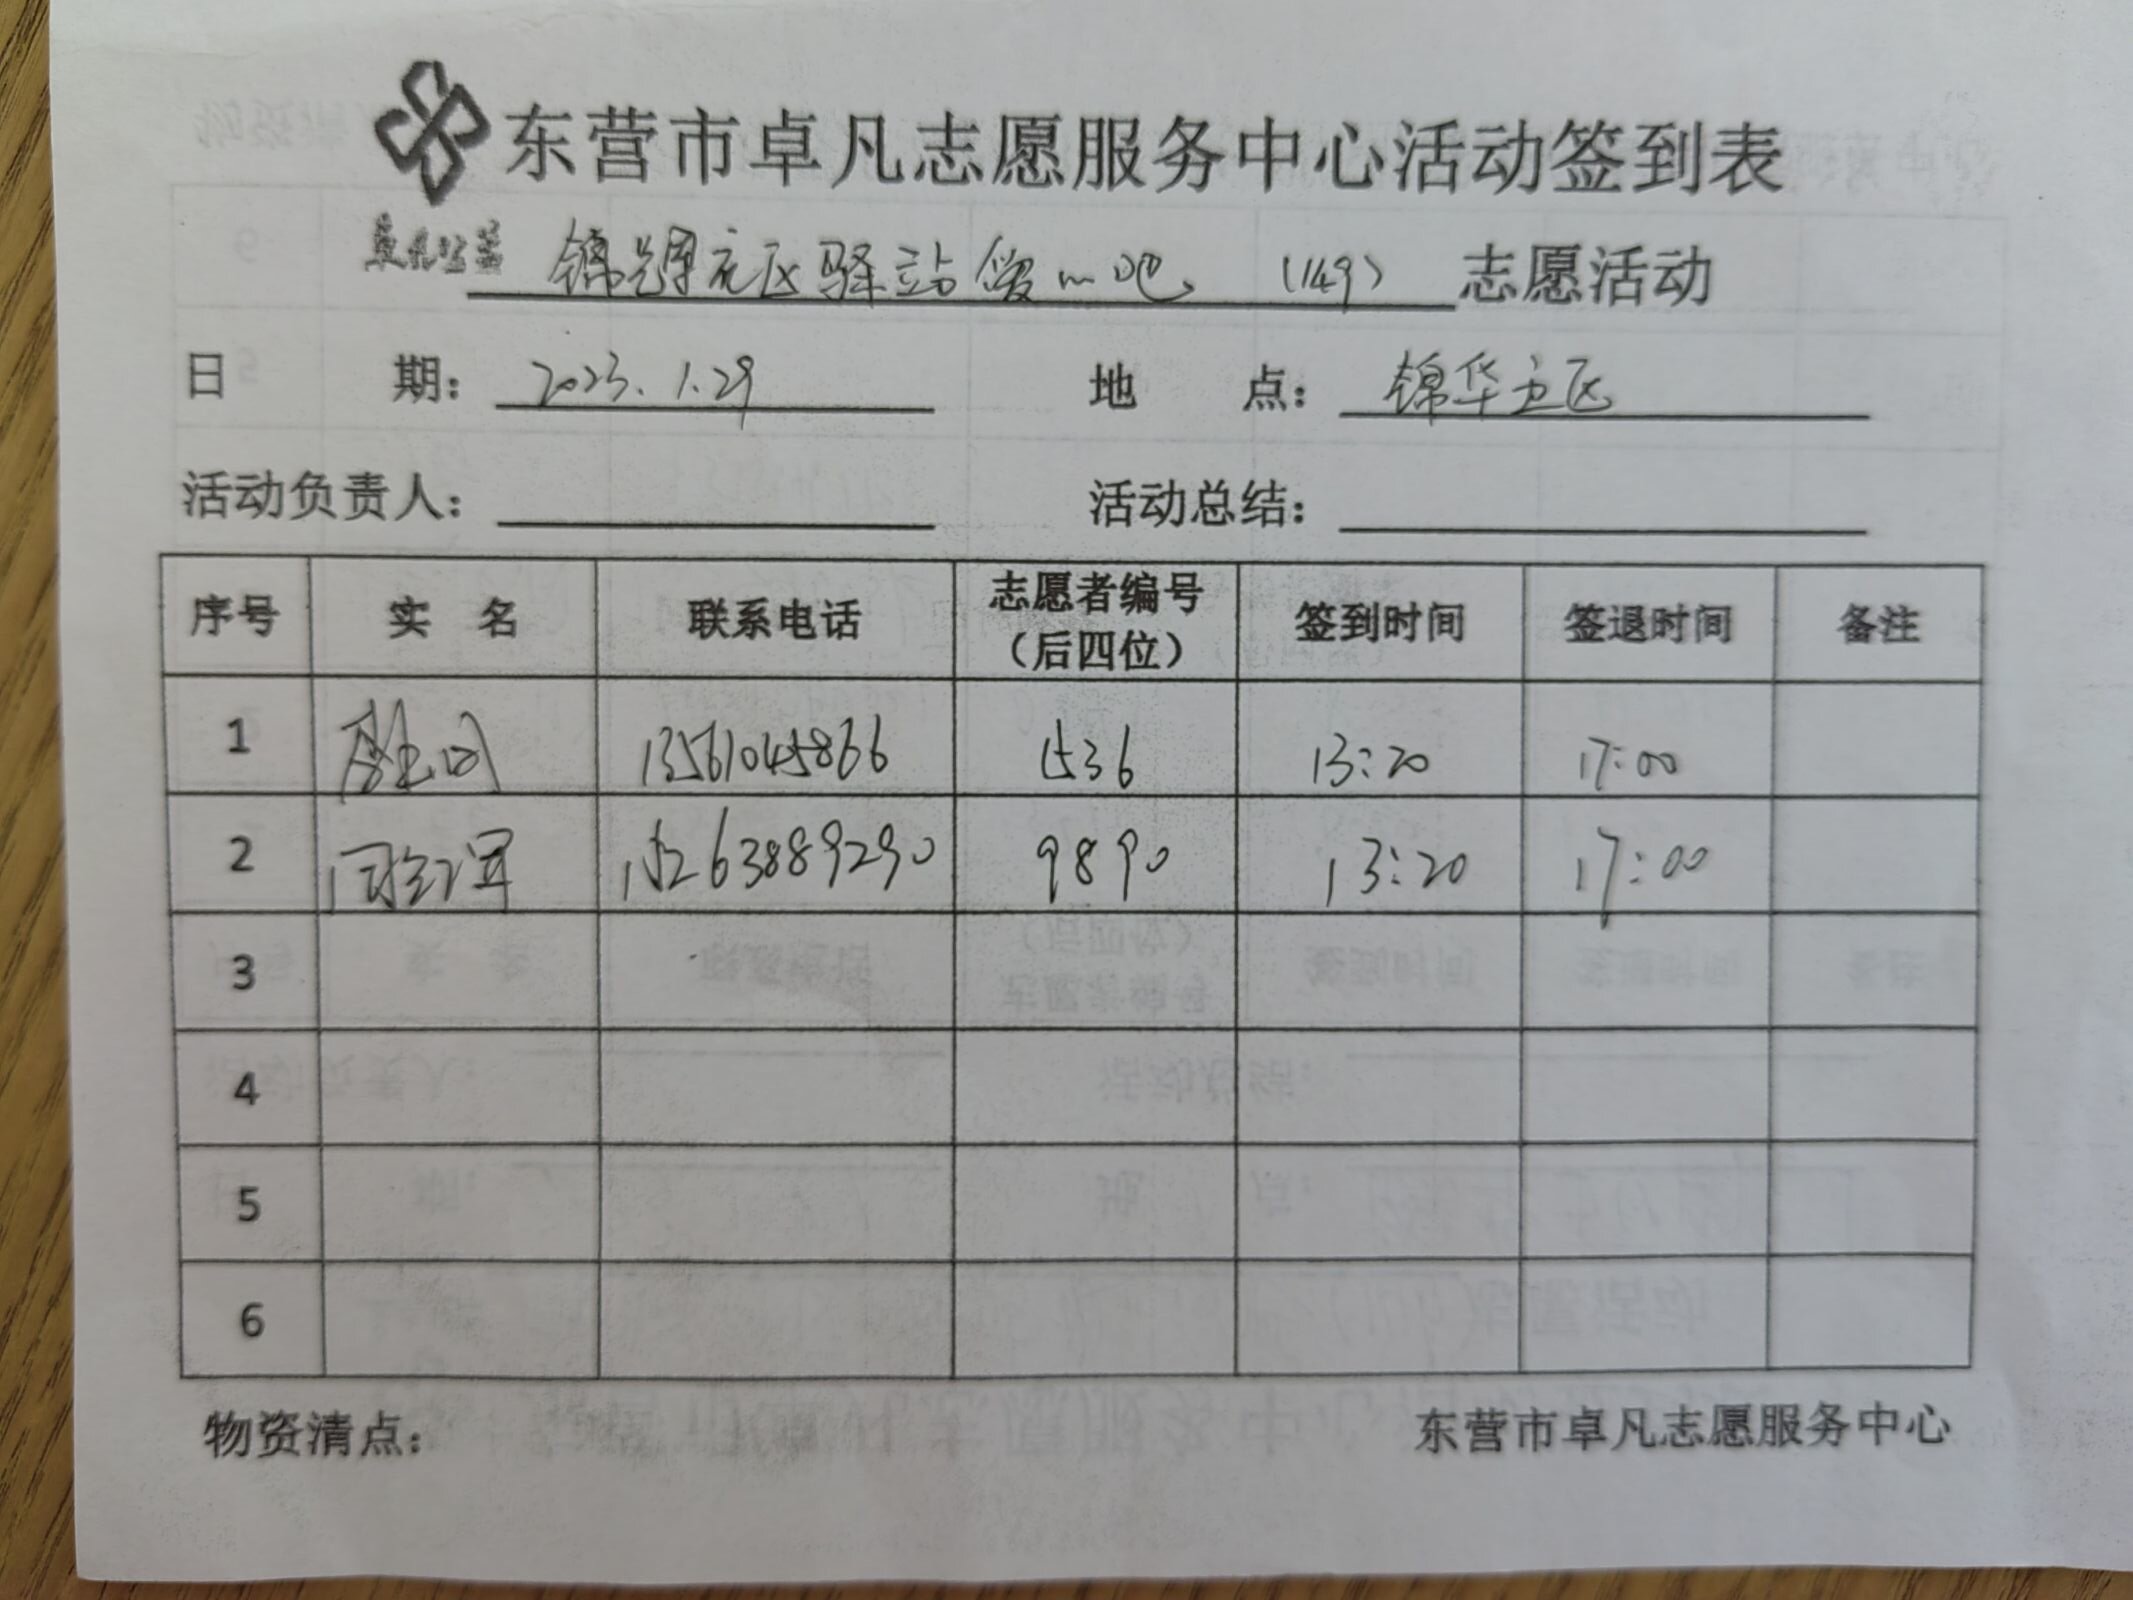 东营市卓凡志愿服务中心活动签到表
卓凡公益
锦华社区驿站爱心吧 (149) 志愿活动
日 期: 2023.1.29 地 点: 锦华社区
活动负责人: 活动总结:
序号 实 名 联系电话 志愿者编号(后四位) 签到时间 签退时间 备注
1 13561045866 1536 13:20 17:00
2 15263889290 9890 13:20 17:00
3
4
5
6
物资清点: 东营市卓凡志愿服务中心